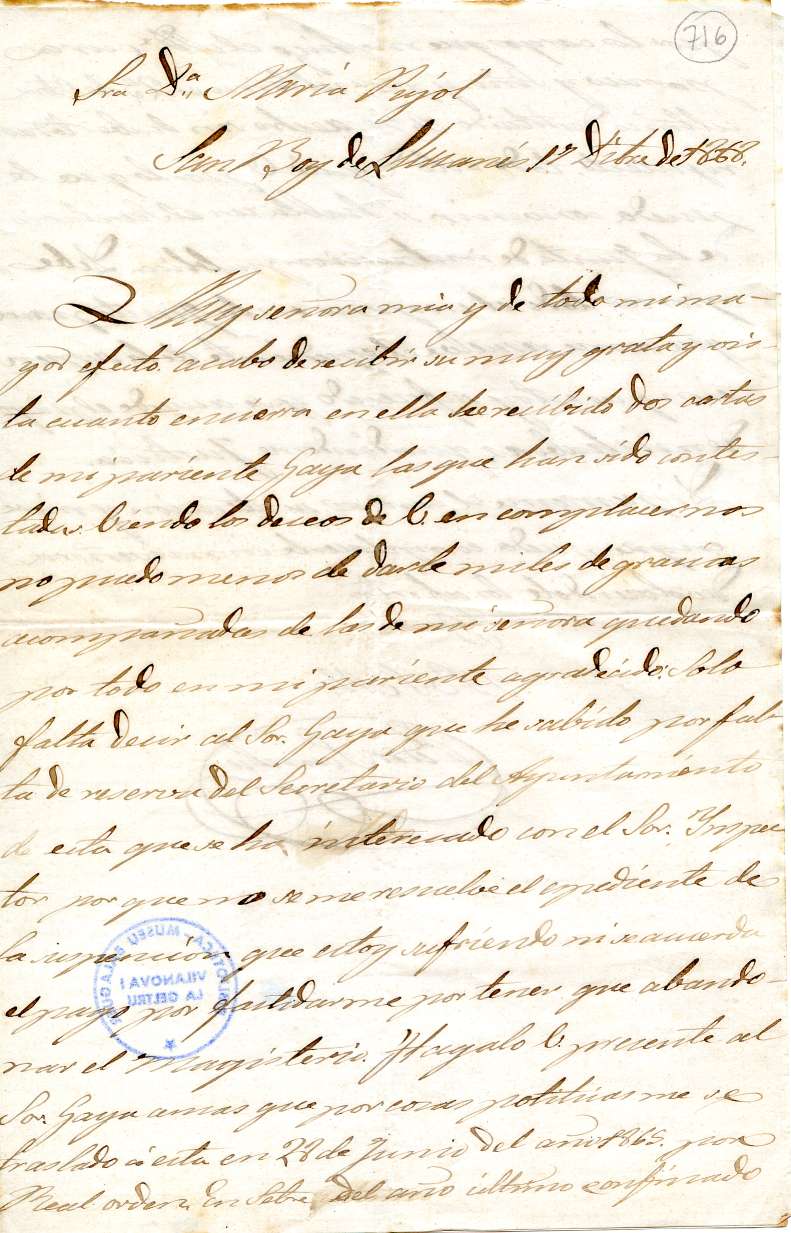 716
Sra D.ª Maria Pujol
San Boy de Llusanés 17 Dibre de 1868.
Muy señora mia y de todo mi ma-
yor efecto. acabo de recibir su muy grata y vis-
ta cuanto encierra en ella he recibido dos cartas
de mi pariente Gaya las que han sido contes-
tadas. Viendo los deceos de V. en complacernos
no puedo menos de darle miles de gracias
acompañadas de las de mi señora quedando
por todo en mi pariente agradecido. Solo
falta decir al Sor. Gaya que he sabido por fal-
ta de reserva del Secretario del Ayuntamiento
de esta que se ha interesado con el Sor. Ynspec
tor por que no se me resuelve el espediente de
la supencion, que estoy sufriendo ni se acuerda
el pago por fastidarme por tener que abando-
nar el Magisterio. Hagalo V. presente al
Sor. Gaya amas que por cosas politicas me se
traslado á esta en 28 de Junio del año 1865. por
Real orden. En Setbre. del año último confinado
BIBLIOTECA - MUSEU BALAGUER
VILANOVA I
LA GELTRU